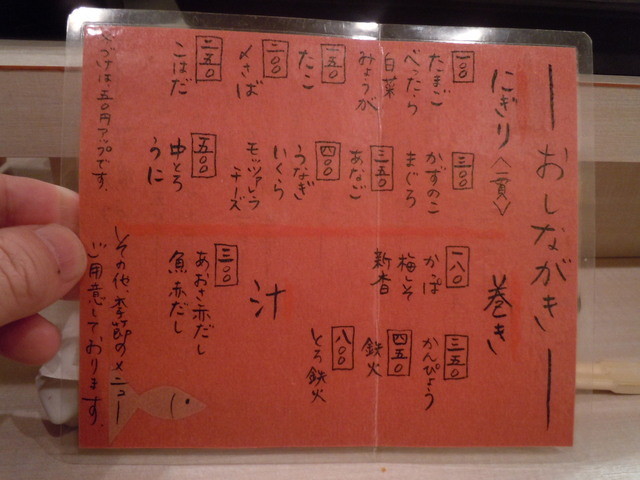 おしながき
にぎり〈一貫〉
一〇〇
たまご
べったら
白菜
みょうが
一五〇
たこ
二〇〇
〆さば
二五〇
こはだ
三〇〇
かずのこ
まぐろ
三五〇
あなご
四〇〇
うなぎ
いくら
モッツァレラ
チーズ
五〇〇
中とろ
うに
づけは五〇円アップです。
巻き
一八〇
かっぱ
梅しそ
新香
三五〇
かんぴょう
四五〇
鉄火
八〇〇
とろ鉄火
汁
三〇〇
あおさ赤だし
魚赤だし
その他、季節のメニュー
ご用意しております。